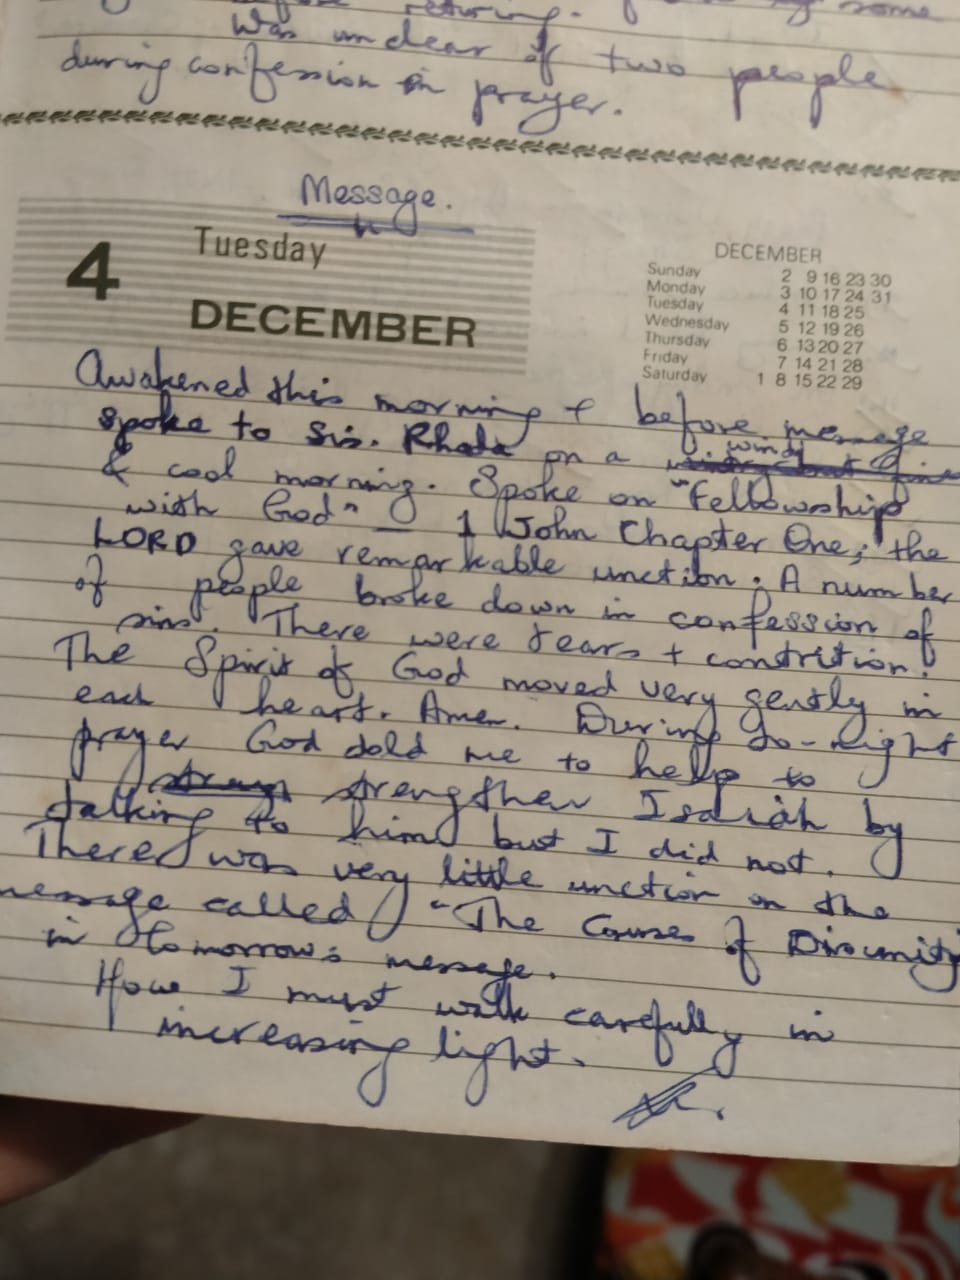 returing. some
Was unclear of two people
during confession in prayer.
Message.
4 Tuesday
DECEMBER
DECEMBER
Sunday 2 9 16 23 30
Monday 3 10 17 24 31
Tuesday 4 11 18 25
Wednesday 5 12 19 26
Thursday 6 13 20 27
Friday 7 14 21 28
Saturday 1 8 15 22 29
Awakened this morning + before message
spoke to Sis. Rhoda on a windy
& cool morning. Spoke on "Fellowship
with God" – 1 John Chapter One; the
LORD gave remarkable unction. A number
of people broke down in confession of
sins. There were tears + contrition.
The Spirit of God moved very gently in
each heart. Amen. During to-night
prayer God told me to help to
strengthen Isaiah by
talking to him but I did not.
There was very little unction on the
message called "The Causes of Disunity
in tomorrow's message.
How I must walk carefully in
increasing light.